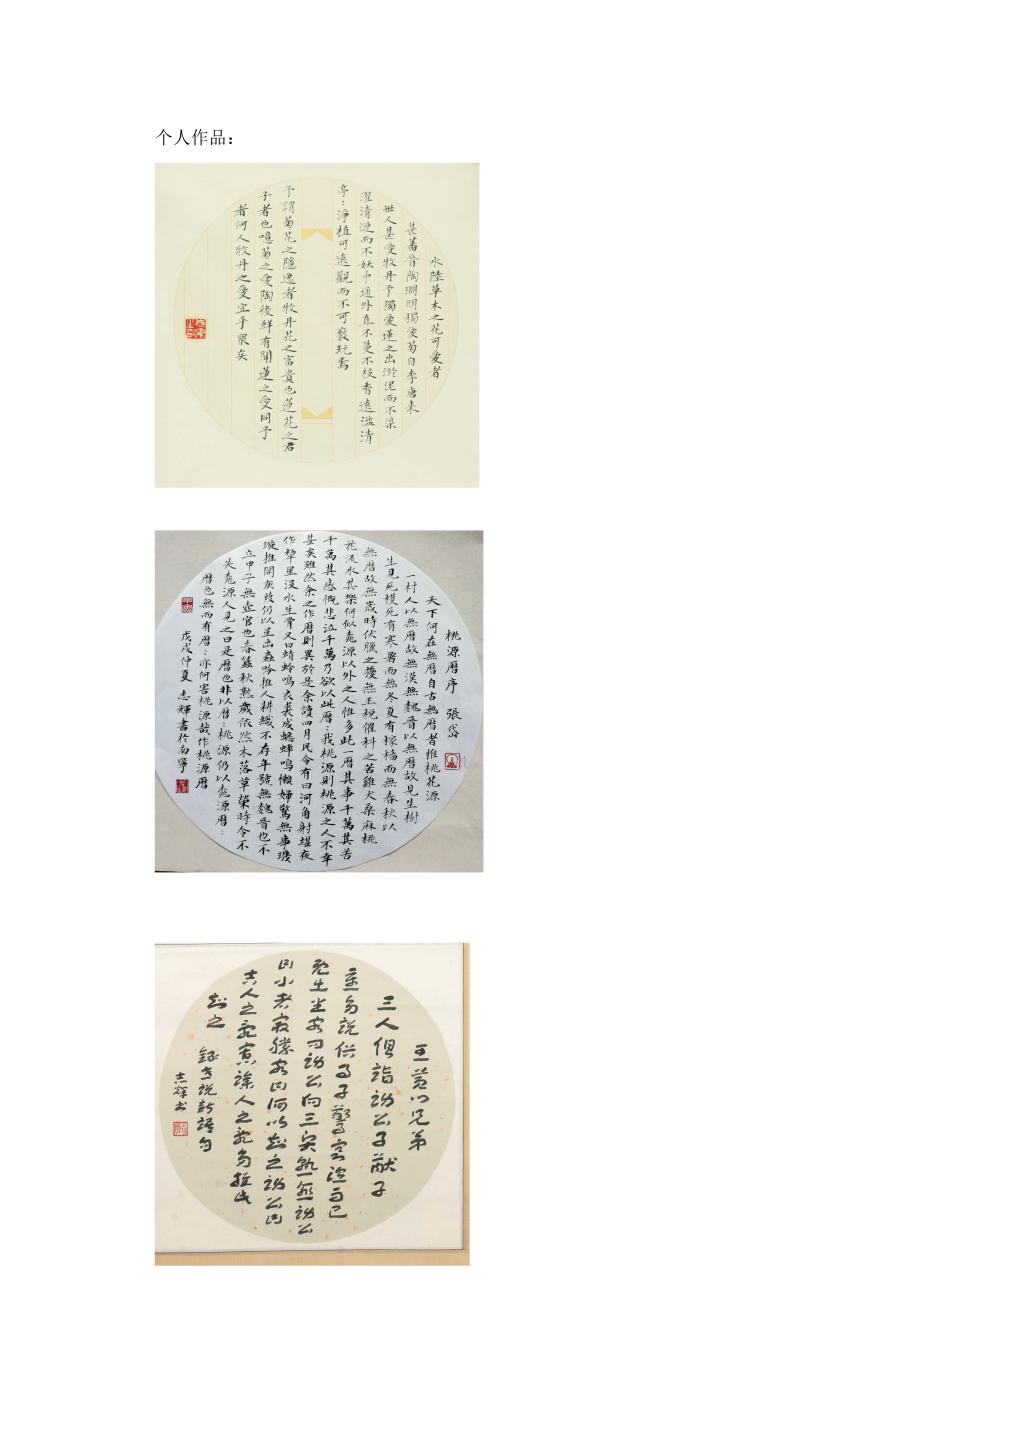 个人作品：
水陸草木之花可愛者
甚蕃晉陶淵明獨愛菊自李唐来
世人甚愛牧丹予獨愛蓮之出淤泥而不染
濯清漣而不妖中通外直不蔓不枝香遠溢清
亭：淨植可遠觀而不可褻玩焉
予謂菊花之隱逸者牧丹花之富貴也蓮花之君
子者也噫菊之愛陶後鮮有聞蓮之愛同予
者何人牧丹之愛宜乎眾矣
桃源曆序 張岱
天下何在無曆自古無曆者惟桃花源
一村人以無曆故無漢無魏晉以無曆故見生樹
生見死穫死有寒暑而無冬夏有稼穡而無春秋以
無曆故無歲時伏臘之擾無王税催科之苦雞犬桑麻桃
花流水其樂何似桃源以外之人惟多此一曆其事千萬其苦
千萬其感慨悲泣千萬乃欲以此曆：我桃源則桃源之人不幸
甚矣雖然余之作曆則異於是余讀四月民令有曰河角射堪夜
作犂星没水生骨又曰蜻蛉鳴衣裘成蟋蟀鳴懶婦驚無事璣
璇推開灰葭仍以星出蟲吟推人耕織不存年號無魏晉也不
立甲子無壺官也春蠶秋熟歲依然木落草榮時令不
失桃源人見之曰是曆也非以曆：桃源仍以桃源曆：
曆也無而有曆：亦何害桃源哉作桃源曆
戊戌仲夏 志輝書於南寧
王黄門兄弟
三人俱詣謝公子猷子
重多説俗事子敬寒温而已
既出坐客問謝公向三賢孰愈謝公
曰小者最勝客曰何以知之謝公曰
吉人之辭寡躁人之辭多推此
知之 録世説新語句
志輝书